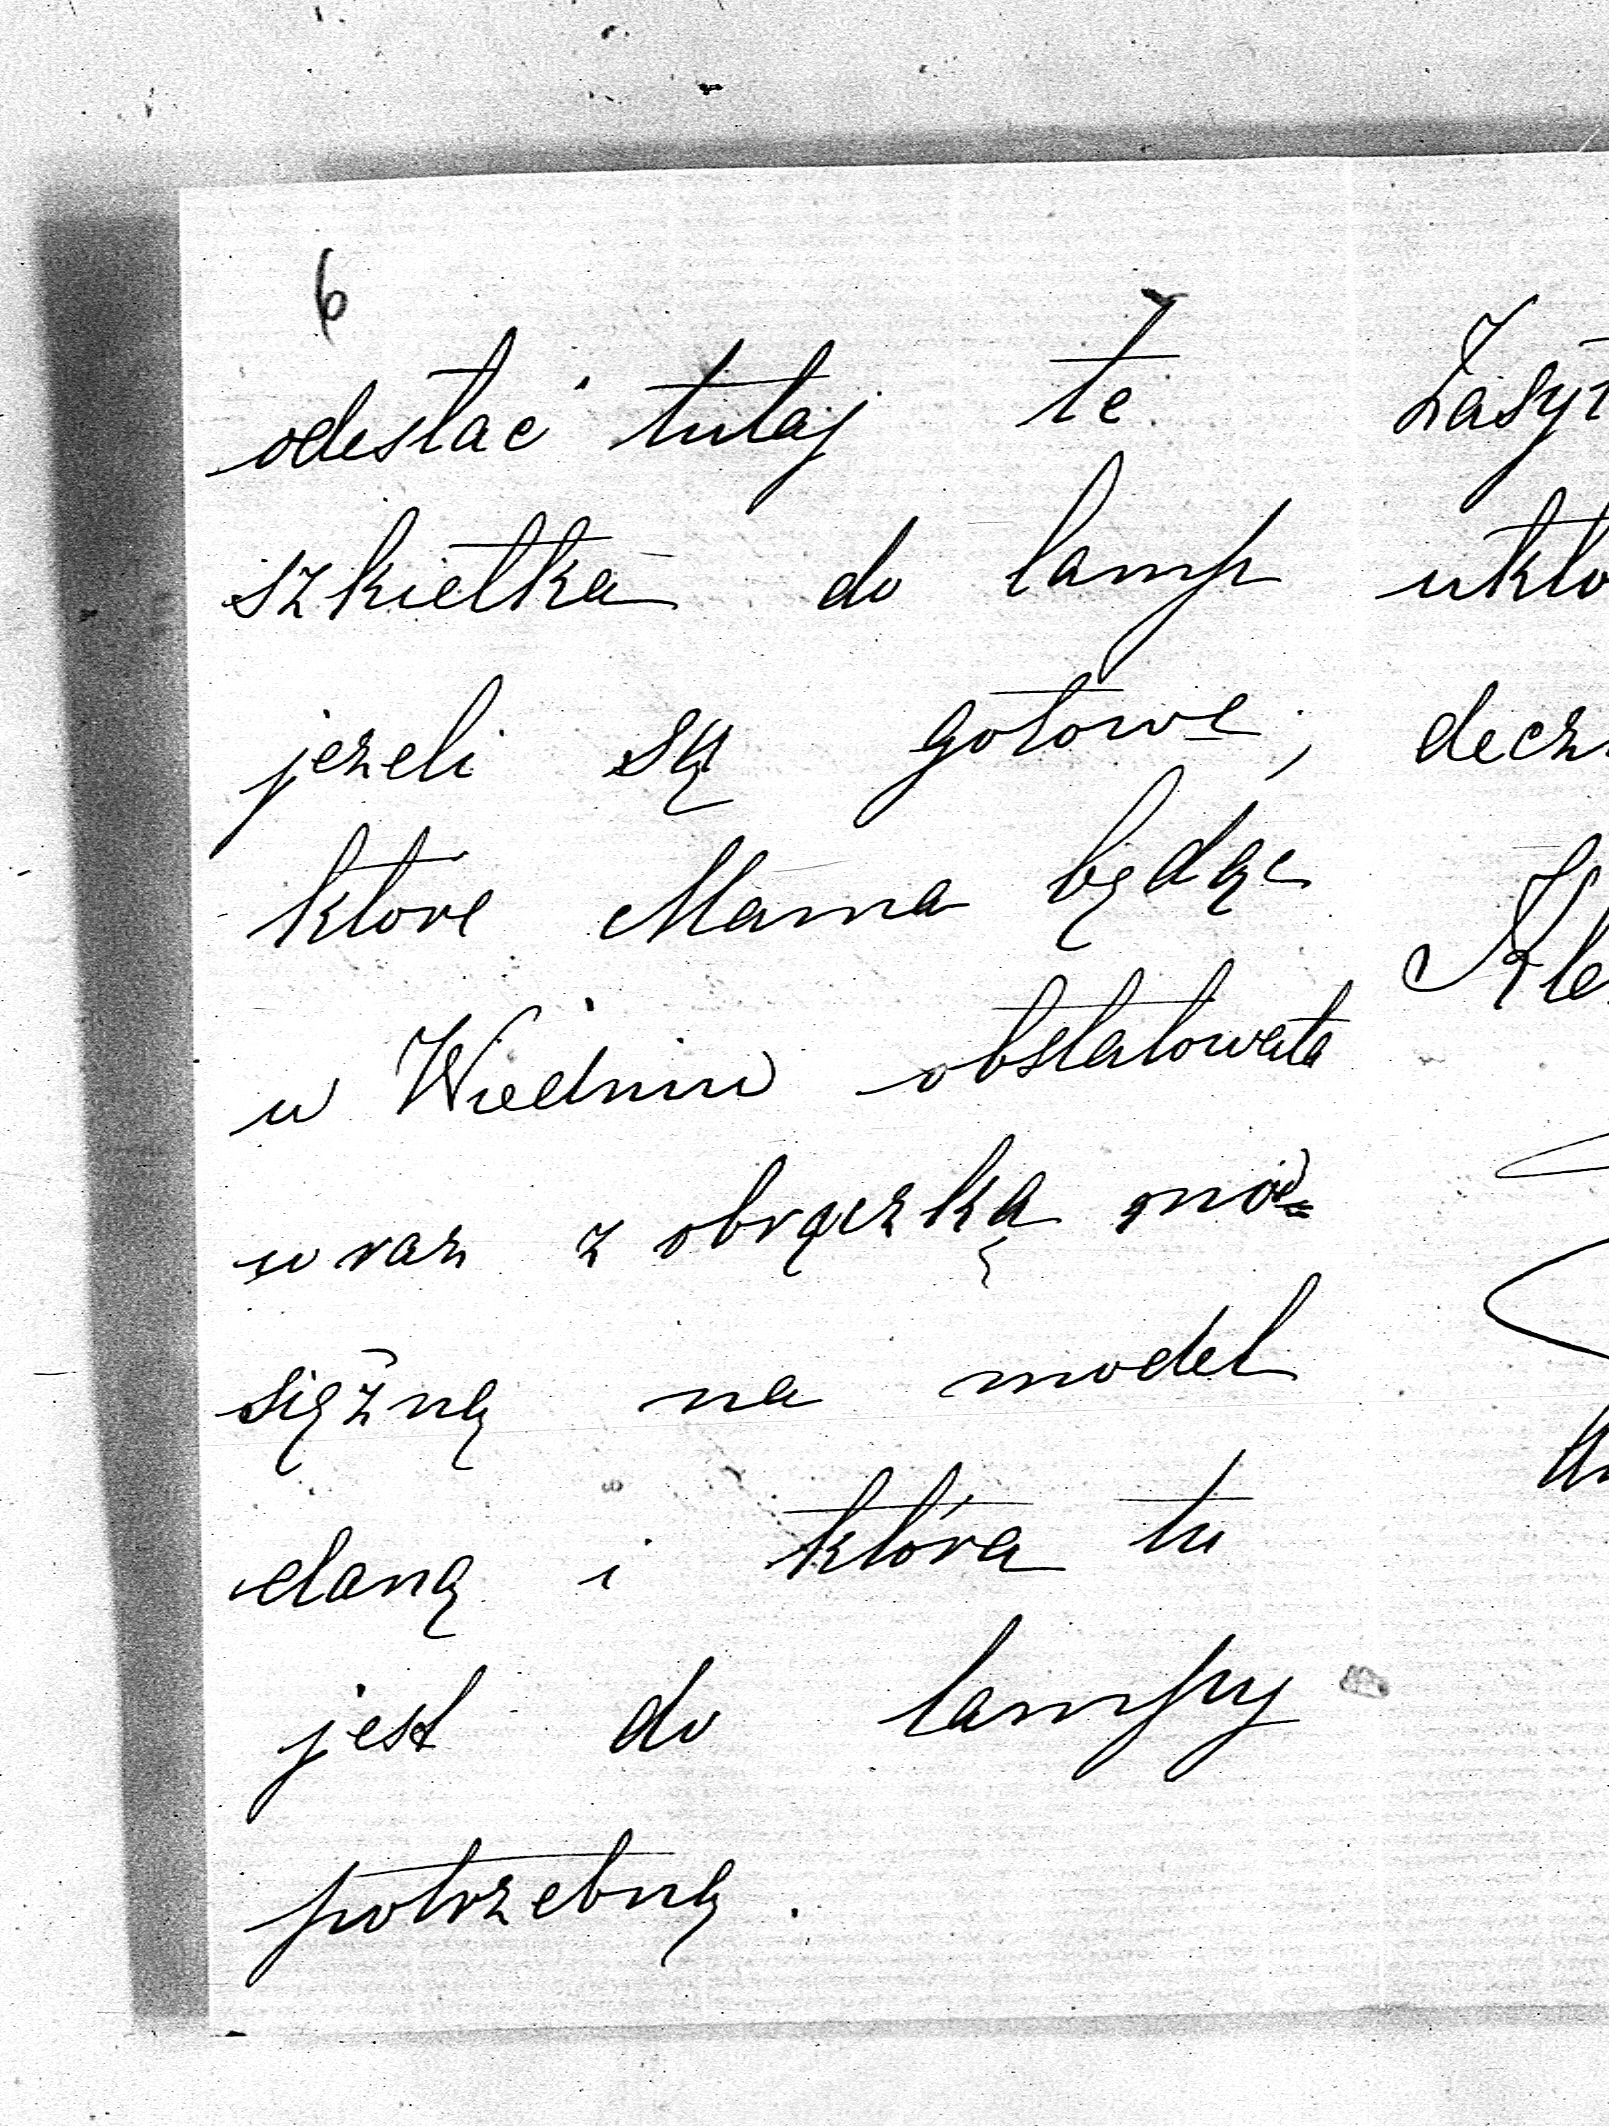 6
odesłać tutaj te
szkiełka do lamp
jezeli są gotowe,
ktore Mama będąc
w Wiedniu obstalowała
wraz z obrączką mo=
siężną na model
daną i która tu
jest do lampy
potrzebną.